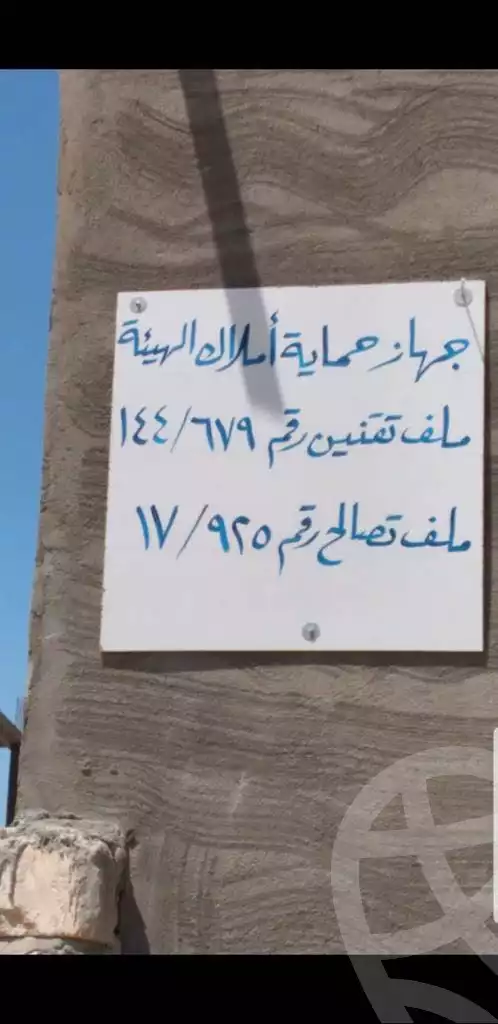 جهاز حماية أملاك الهيئة
ملف تقنين رقم ١٤٤/٦٧٩
ملف تصالح رقم ١٧/٩٢٥